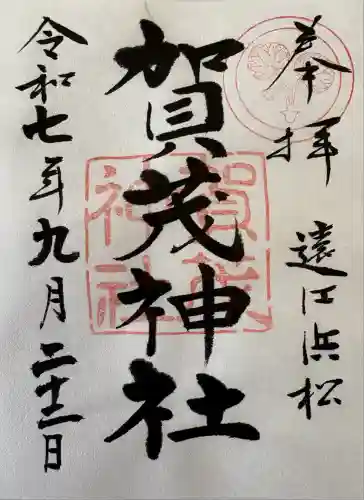 奉拝 遠江浜松
賀茂神社
賀茂
神社
令和七年九月二十二日